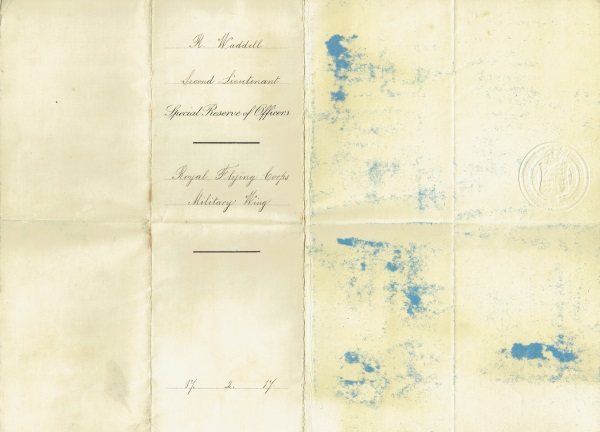 R. Waddell
Second Lieutenant
Special Reserve of Officers
Royal Flying Corps
Military Wing
17 2. 17